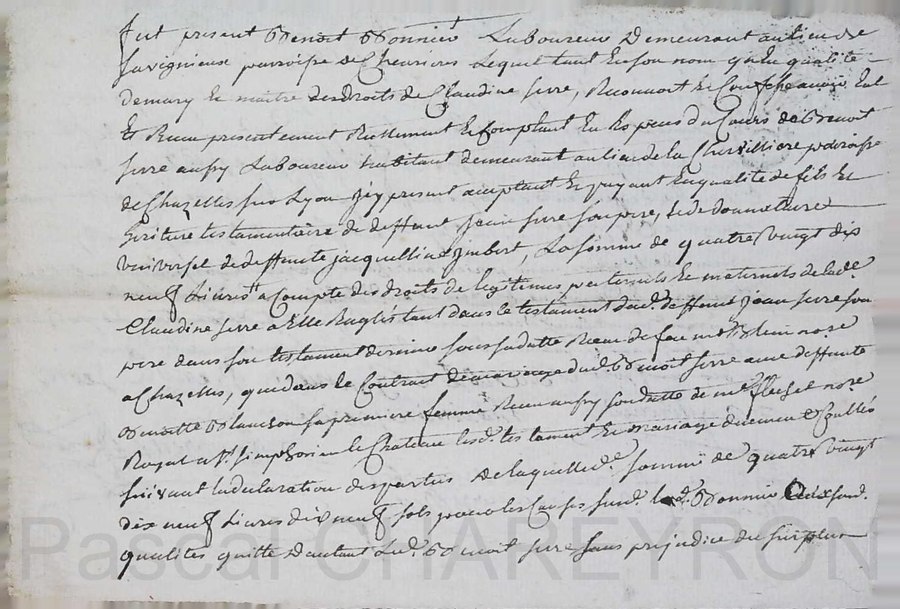 fut present Benoit Bonnier Laboureur Demeurant au lieu de
Savignieux parroisse de Chevrieres Lequel tant En son nom qu'En qualité
de mary Et maitre des droits de Claudine serre, Reconnoit Et Confesse avoir Eu
Et Receu presentement Reellement Et Comptant En Especes du Cours de Benoit
serre aussy Laboureur habitant demeurant au lieu de la Chevilliere parroisse
de Chazelles sur Lyon icy present acceptant Et payant En qualité de fils Et
heritier testamentaire de deffunt jean serre son pere, Et de donnataire
universel de deffunte jacquelline jmbert, La somme de quatre vingt dix
neuf Livres a Compte des droits de legitimes paternels Et maternels de lad.e
Claudine serre a Elle Reglés tant dans le testament dud. deffunt jean serre son
pere dans son testament dernier sous sa datte Receu de feu me nore
a Chazelles, que dans le Contract de mariage dud. Benoit serre avec deffunte
Benoitte Blanchon sa premiere femme Receu aussy sous datte de me nore
Royal a St. simphorien le Chateau lesd. testament Et mariage duement Controllés
suivant la declaration des parties De laquelle d. somme de quatre vingt
dix neuf Livres dix neuf sols pour les Causes susd. led. Bonnier Esd. susd.
qualités quitte D'autant Led. Benoit serre sans prejudice du surplus
Pascal CHAREYRON